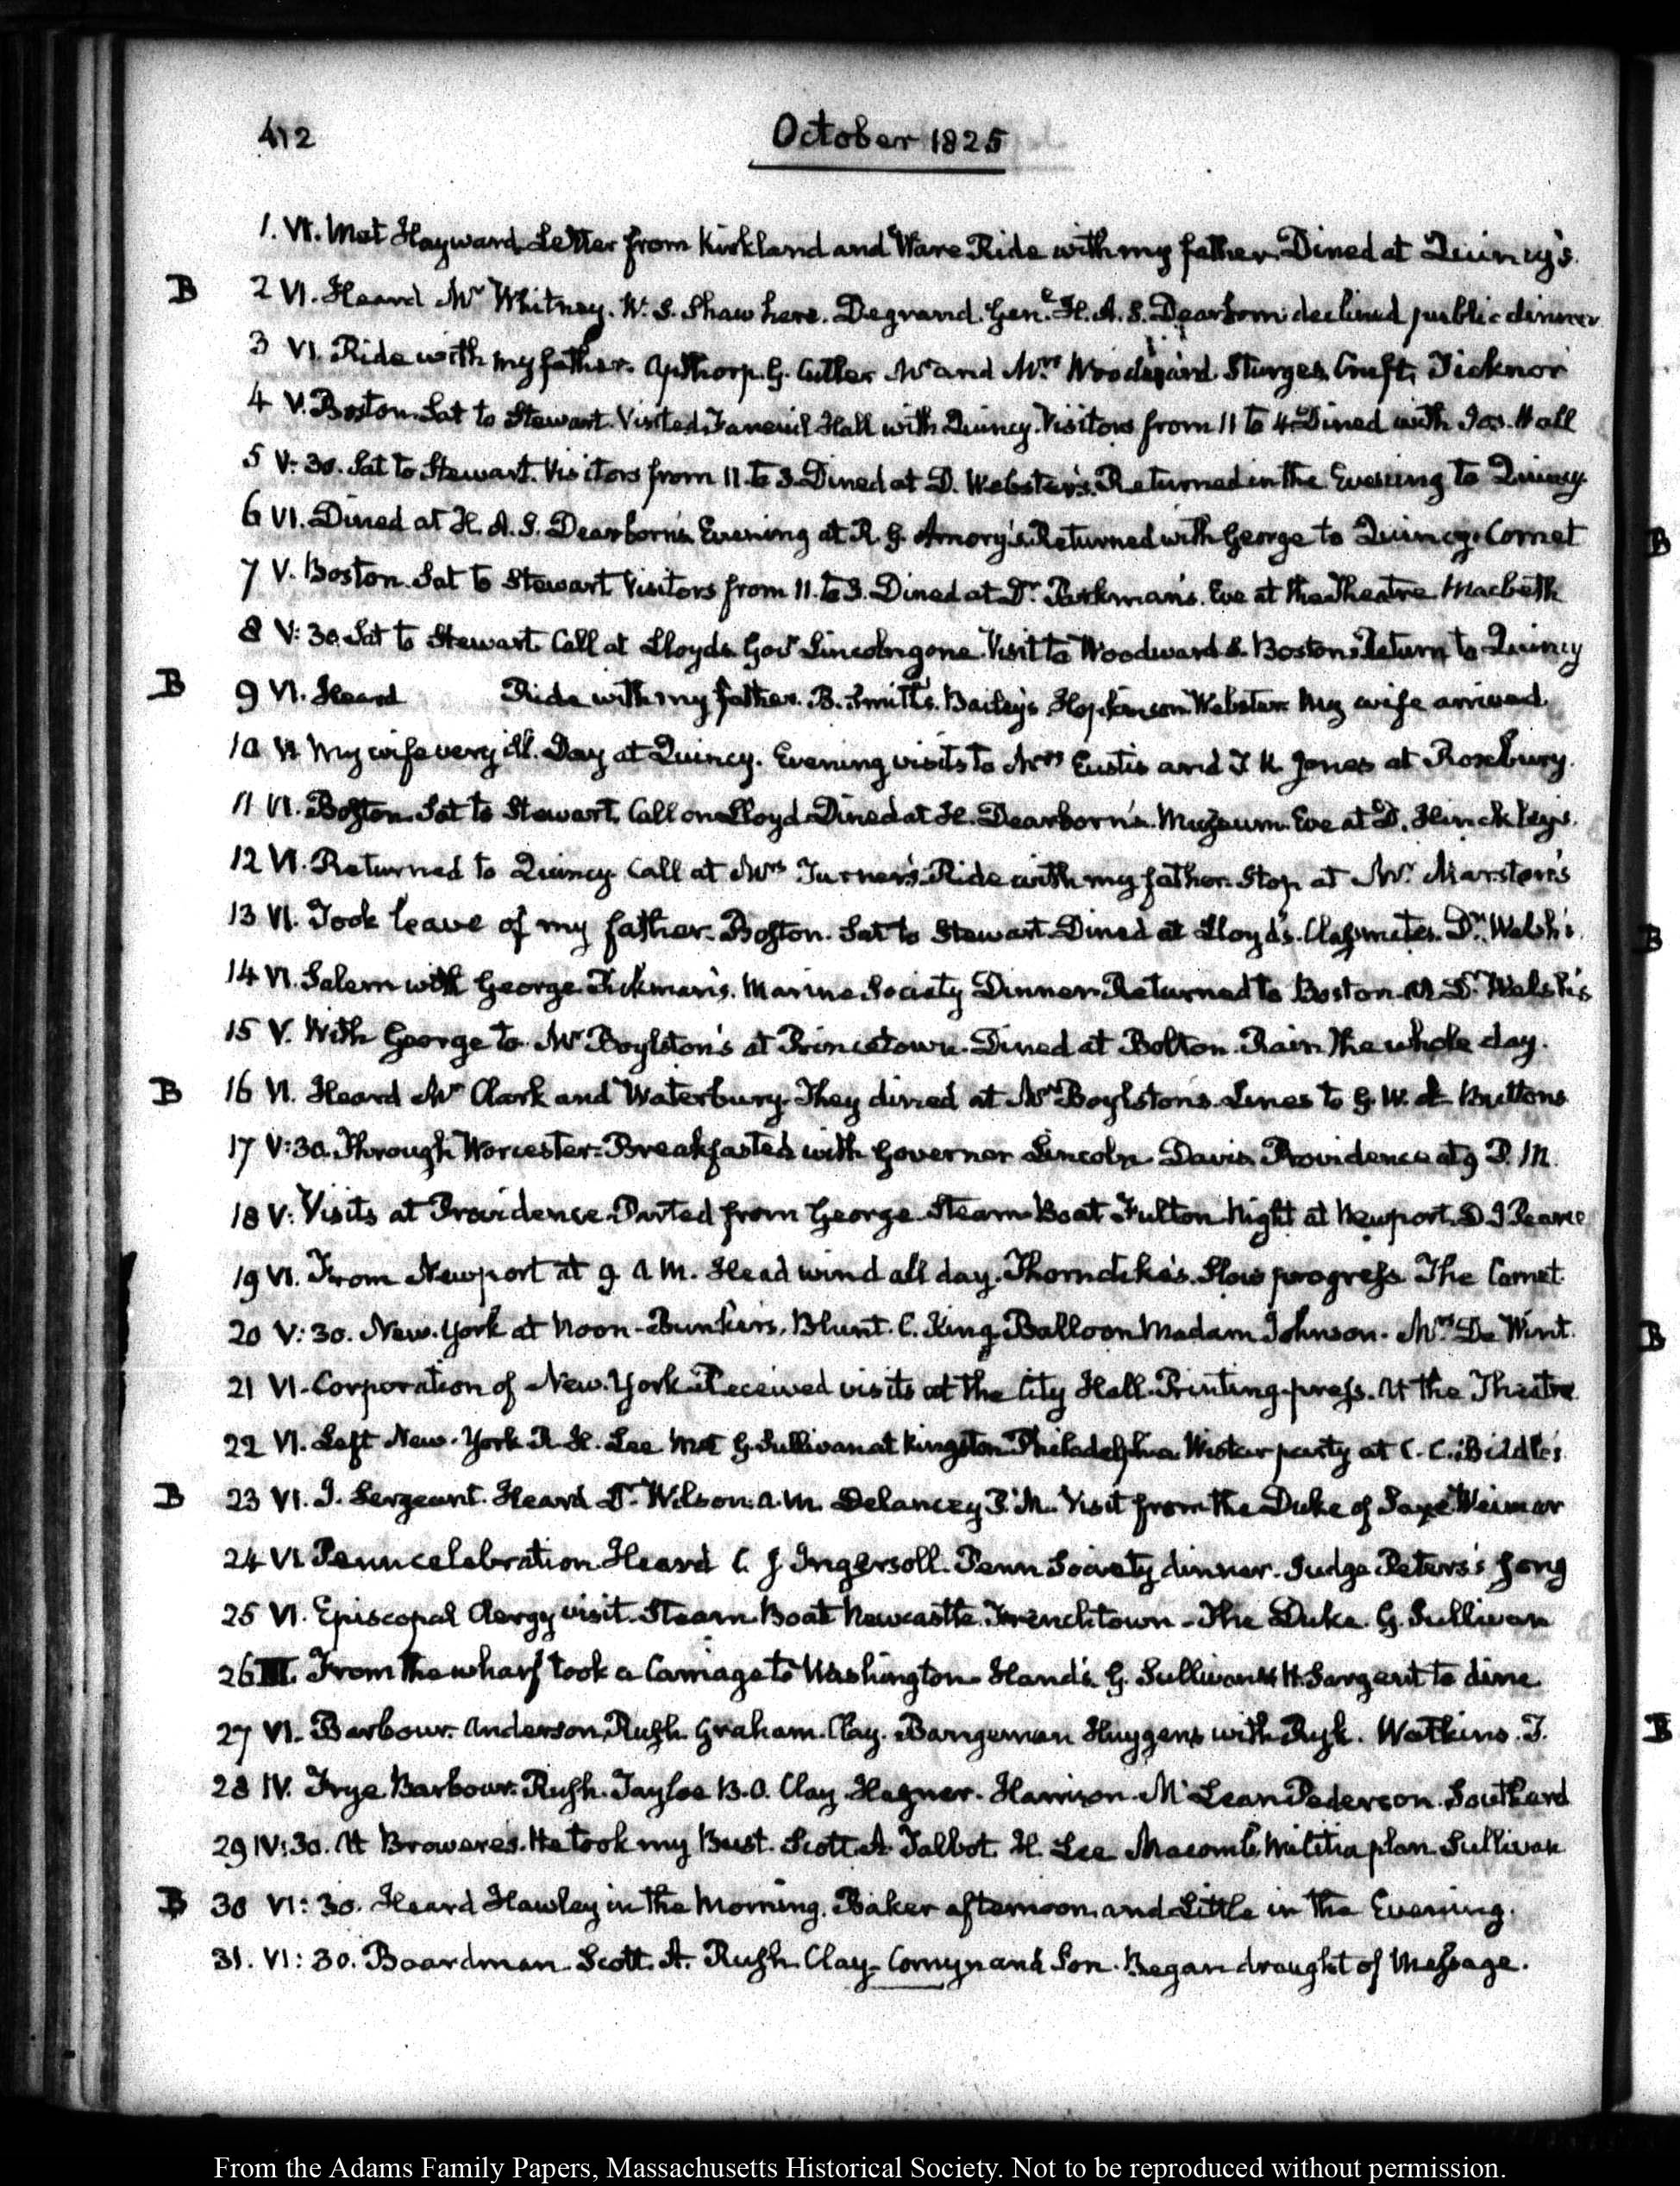 412
October 1825
1. VI. Met Hayward Letter from Kirkland and Ware Ride with my father. Dined at Quincy's.
B 2 VI. Heard Mr Whitney. W. S. Shaw here. Degrand. Genl. H. A. S. Dearborn declined public dinner
3 VI. Ride with my father. Apthorp. G. Cutler Mr and Mrs Woodward. Sturges, Cruft, Ticknor
4 V. Boston. Sat to Stewart. Visited Faneuil Hall with Quincy. Visitors from 11 to 4 Dined with Jos. Hall
5 V: 30. Sat to Stewart. Visitors from 11 to 3. Dined at D. Webster's. Returned in the Evening to Quincy.
6 VI. Dined at H. A. S. Dearborn's. Evening at R. G. Amory's. Returned with George to Quincy. Comet
7 V. Boston. Sat to Stewart Visitors from 11. to 3. Dined at Dr. Parkman's. Eve at the Theatre Macbeth
8 V: 30. Sat to Stewart. Call at Lloyds. Govr Lincoln gone. Visit to Woodward S. Boston. Return to Quincy
B 9 VI. Heard Ride with my father. B. Smith's. Bailey's Hopkinson Webster. My wife arrived.
10 VI My wife very ill. Day at Quincy. Evening visits to Mrs Eustis and T. K. Jones at Roxbury.
11 VI. Boston. Sat to Stewart. Call on Lloyd. Dined at H. Dearborn's. Museum. Eve at D. Hinckley's.
12 VI. Returned to Quincy. Call at Mrs Turner's. Ride with my father. Stop at Mr. Marston's
13 VI. Took leave of my father. Boston. Sat to Stewart. Dined at Lloyd's. Classmates. Dr. Welsh's.
14 VI. Salem with George. Pickman's. Marine Society Dinner. Returned to Boston. At Dr. Welsh's
15 V. With George to Mr Boylston's at Princetown. Dined at Bolton. Rain the whole day.
B 16 VI. Heard Mr Clark and Waterbury. They dined at Mr Boylston's. Lines to G. W. &. Buttons
17 V:30. Through Worcester. Breakfasted with Governor Lincoln Davis. Providence at 9 P. M.
18 V: Visits at Providence. Parted from George. Steam-Boat Fulton Night at Newport. D J Pearce
19 VI. From Newport at 9 A M. Head wind all day. Thorndike's. Slow progress. The Comet
20 V: 30. New-York at Noon. Bunkers. Blunt. C. King. Balloon Madam Johnson. Mrs De Wint.
21 VI. Corporation of New-York. Received visits at the City Hall. Printing-press. At the Theatre
22 VI. Left New-York R. H. Lee Met G. Sullivan at Kingston. Philadelphia. Wistar party at C. C. Biddle's.
B 23 VI. J. Sergeant. Heard Dr. Wilson. A. M. Delancey P. M. Visit from the Duke of Saxe Weimar
24 VI. Penn celebration. Heard C J Ingersoll. Penn Society dinner. Judge Peters's song
25 VI. Episcopal Clergy visit. Steam Boat Newcastle. Frenchtown. The Duke. G. Sullivan
26 III. From the wharf took a Carriage to Washington. Hand's. G. Sullivan & H. Sargent to dine
27 VI. Barbour. Anderson, Rush. Graham. Clay. Bangeman Huygens with Ryk. Watkins. T.
28 IV. Frye Barbour. Rush. Tayloe B. O. Clay. Hagner. Harrison. Mc Lean Pederson. Southard
29 IV: 30. At Broweres. He took my Bust. Scott. A. Talbot. H. Lee Macomb, Militia plan Sullivan
B 30 VI: 30. Heard Hawley in the Morning. Baker afternoon. and Little in the Evening.
31. VI: 30. Boardman. Scott. A. Rush. Clay. Comyn and Son. Began draught of Message.
B
B
B
B
From the Adams Family Papers, Massachusetts Historical Society. Not to be reproduced without permission.